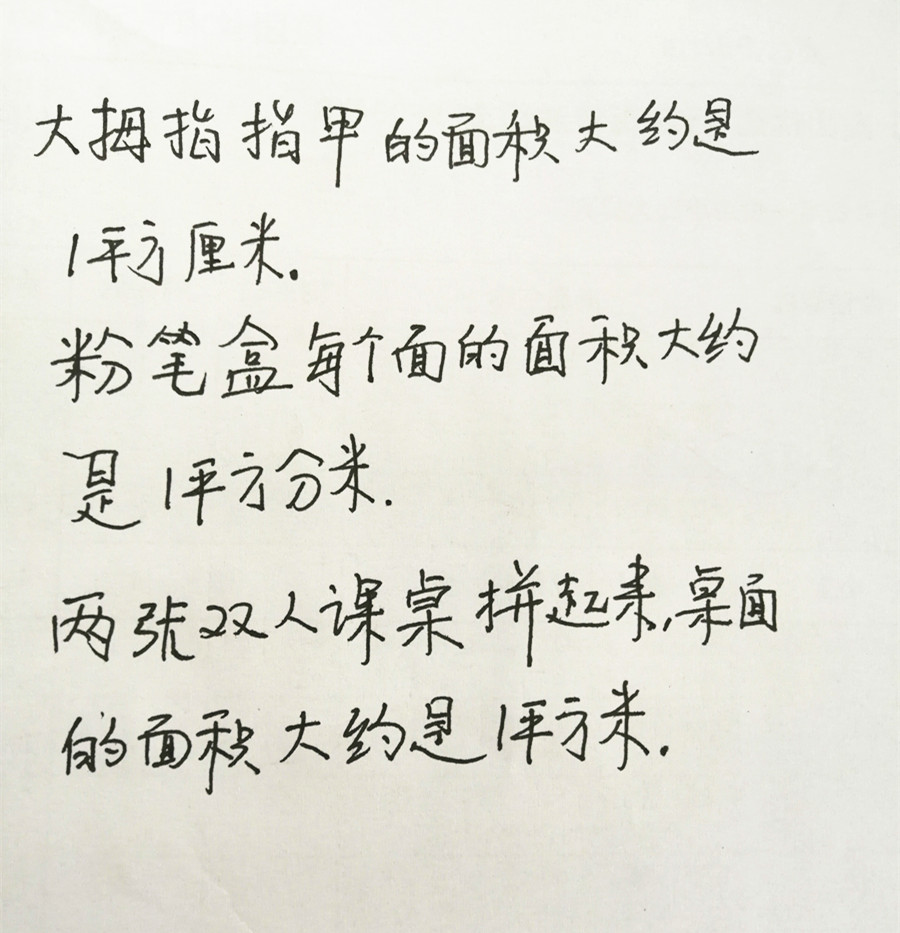 大拇指指甲的面积大约是
1平方厘米.
粉笔盒每个面的面积大约
是1平方分米.
两张双人课桌拼起来,桌面
的面积大约是1平方米.